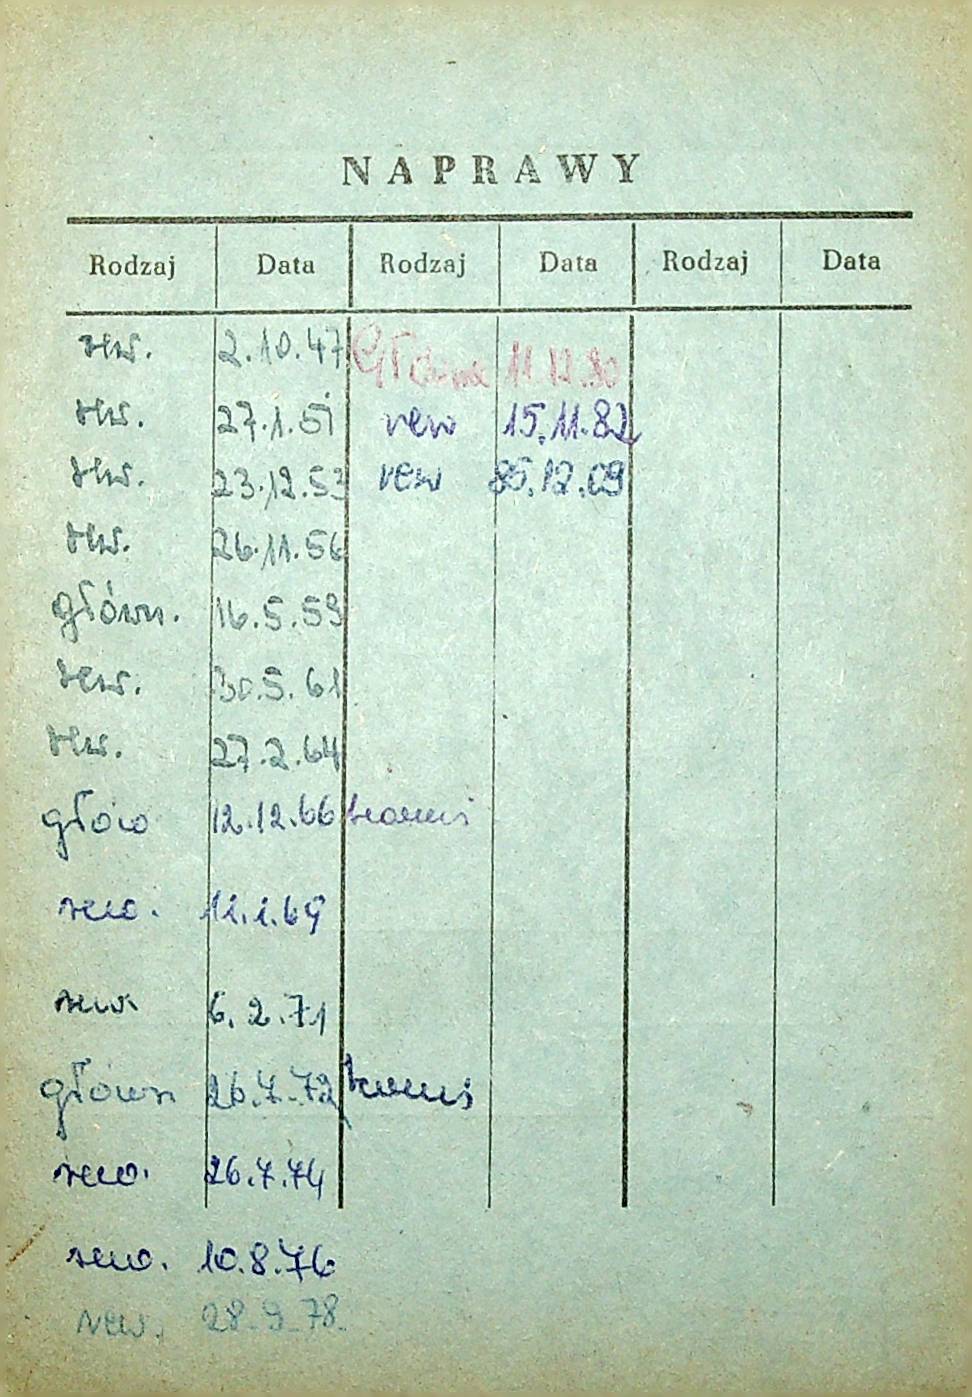 NAPRAWY
Rodzaj Data Rodzaj Data Rodzaj Data
rew. 2.10.47 Główna 11.12.80
rew. 27.1.51 rew 15.11.82
rew. 23.12.53 rew 85.12.09
rew. 26.11.56
główn. 16.5.59
rew. 30.5.61
rew. 27.2.64
głów 12.12.66
rew. 11.1.69
rew. 6.2.71
główn 26.7.72
rew. 26.7.74
rew. 10.8.76
rew. 28.9.78.